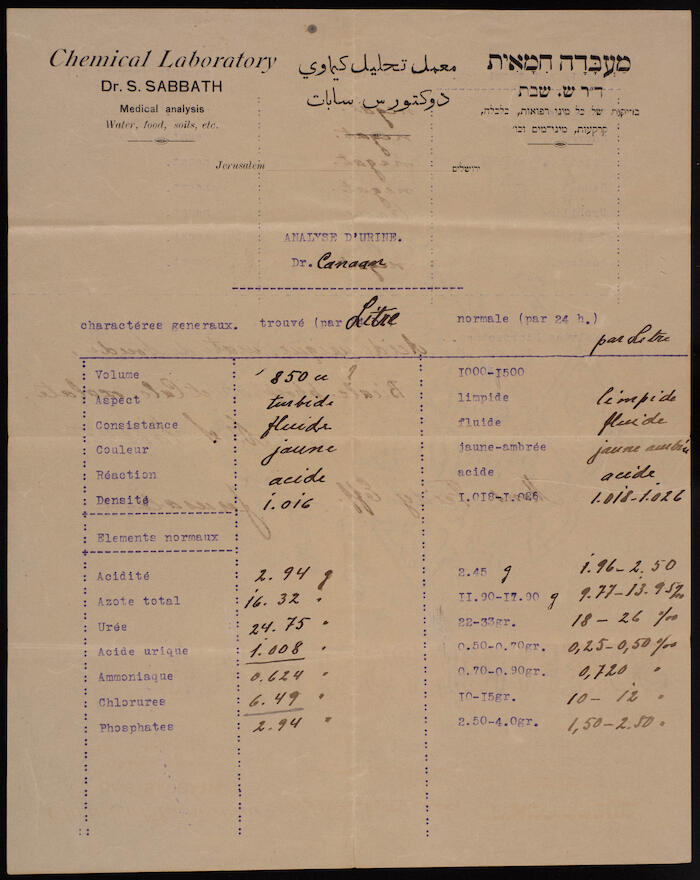 Chemical Laboratory
Dr. S. SABBATH
Medical analysis
Water, food, soils, etc.
معمل تحليل كيماوي
دوكتورس سابات
מַעְבָּדָה חִמָאִית
ד״ר ש. שבת
בדיקות של כל מיני רפואות, כלכלה,
קרקעות, מינרלים וכו׳
Jerusalem ירושלים
ANALYSE D'URINE.
Dr. Canaan
charactéres generaux. trouvé (par Litre normale (par 24 h.) par Litre
Volume 850 cc ? 1000-1500
Aspect turbide limpide limpide
Consistance fluide fluide fluide
Couleur jaune jaune-ambrée jaune ambrée
Réaction acide acide acide
Densité 1.016 1.018-1.026 1.018-1.026
Elements normaux
Acidité 2.94 g 2.45 g 1.96-2.50
Azote total 16.32 " 11.90-17.90 g 9.77-13.95‰
Urée 24.75 " 22-33gr. 18-26 ‰
Acide urique 1.008 " 0.50-0.70gr. 0,25-0,50‰
Ammoniaque 0.624 " 0.70-0.90gr. 0,720 "
Chlorures 6.49 " 10-15gr. 10-12 "
Phosphates 2.94 " 2.50-4.0gr. 1,50-2.50 "